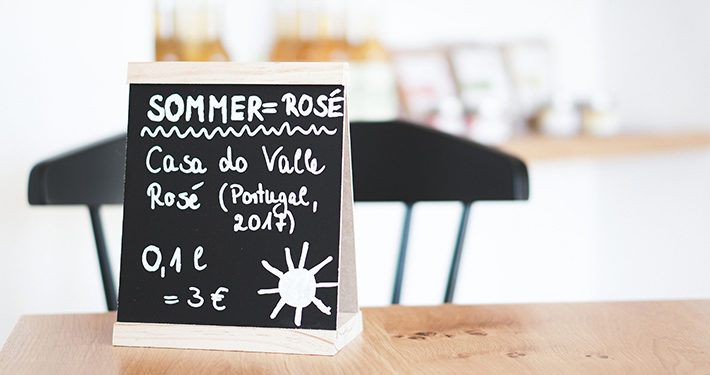 SOMMER= ROSÉ
Casa do Valle
Rosé (Portugal,
2017)
0,1 l
= 3 €